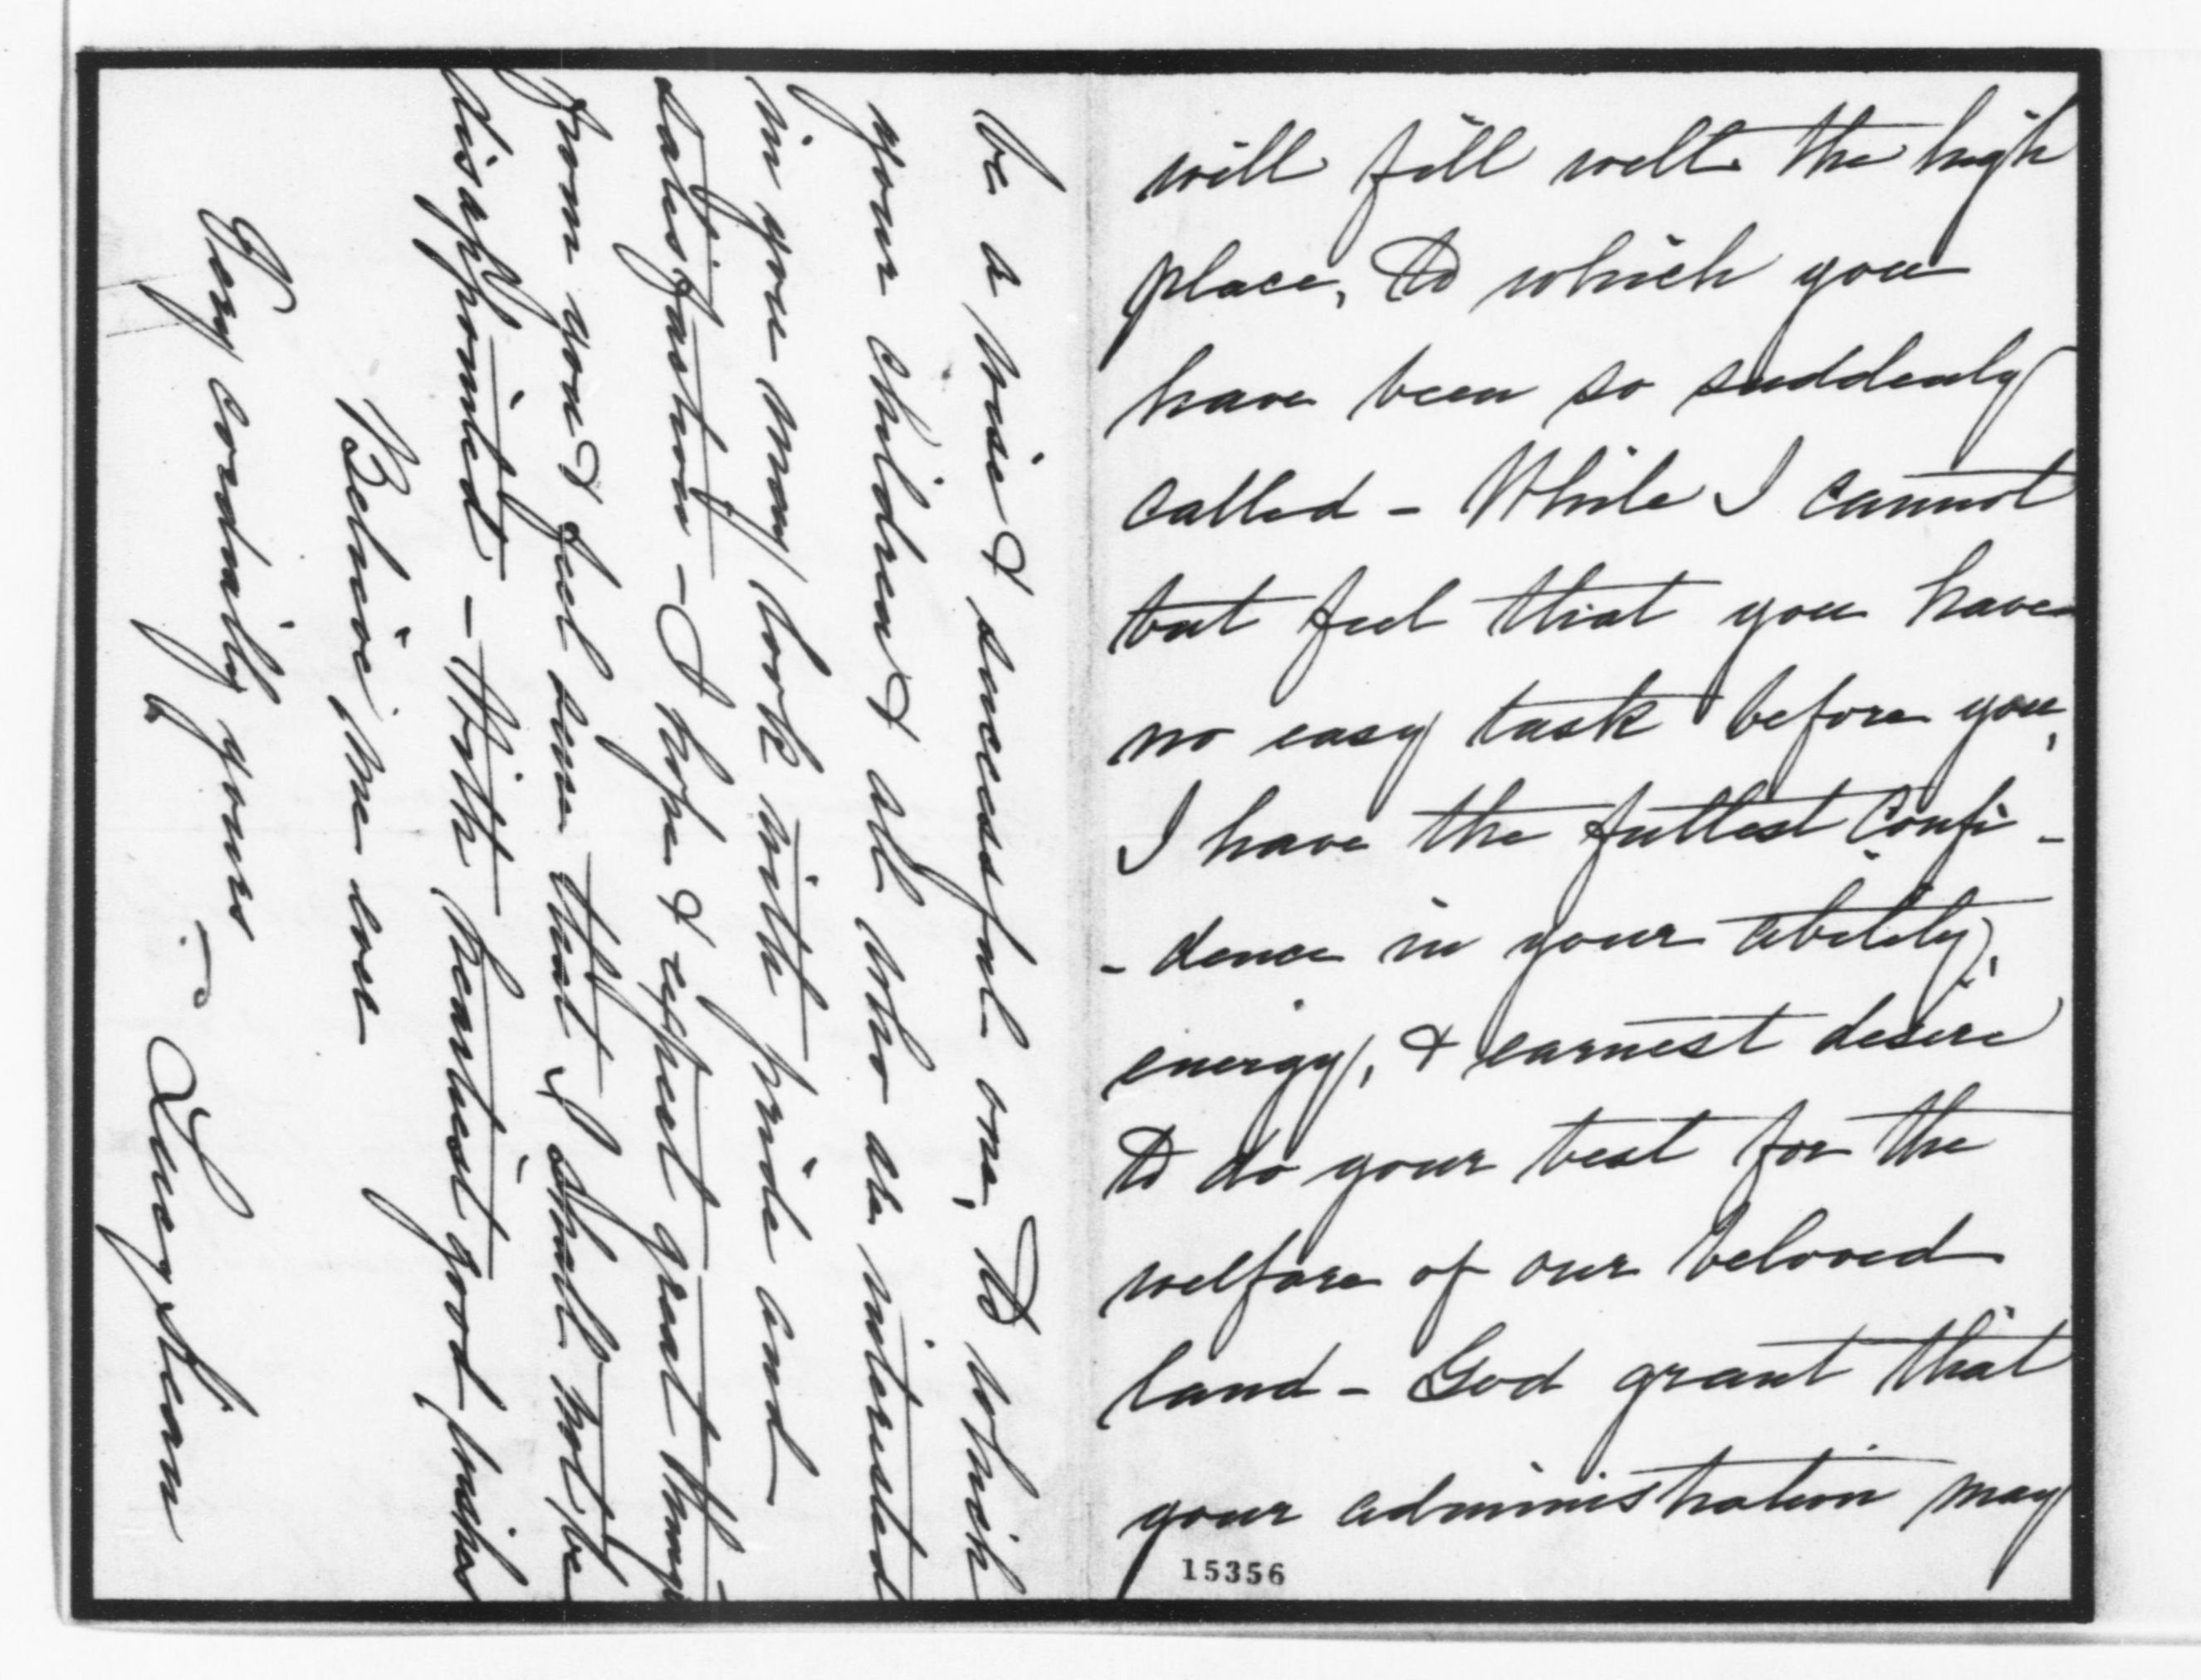 will fill well the high
place, to which you
have been so suddenly
called - While I cannot
but feel that you have
no easy task before you,
I have the fullest Confi -
- dence in your ability,
energy, & earnest desire
to do your best for the
welfare of our beloved
land - God grant that
your administration may
15356
be a wise & successful one, to which
your children & all who are interested
in you may look with pride and
satisfaction - I hope & expect great things
from you & feel sure that I shall not be
disappointed - With heartiest good wishes
Believe me ever
Very cordially yours